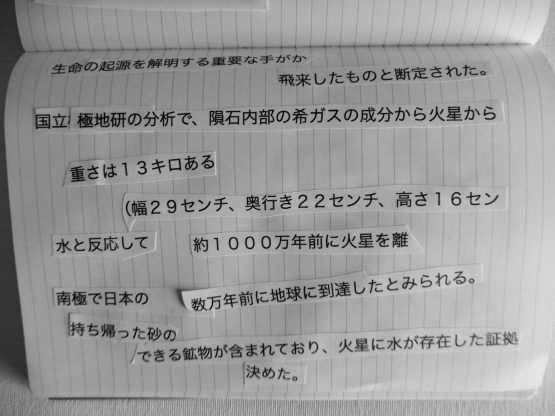 生命の起源を解明する重要な手がか
飛来したものと断定された。
国立 極地研の分析で、隕石内部の希ガスの成分から火星から
重さは１３キロある
（幅２９センチ、奥行き２２センチ、高さ１６セン
水と反応して 約１０００万年前に火星を離
南極で日本の 数万年前に地球に到達したとみられる。
持ち帰った砂の
できる鉱物が含まれており、火星に水が存在した証拠
決めた。